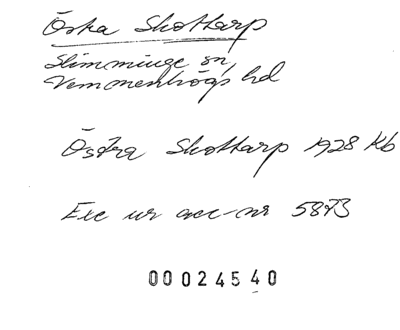 Östra Skottarp
Slimminge sn,
Vemmenhögs hd
Östra Skottarp 1928 Kb
Exc ur acc-nr 5873
00024540